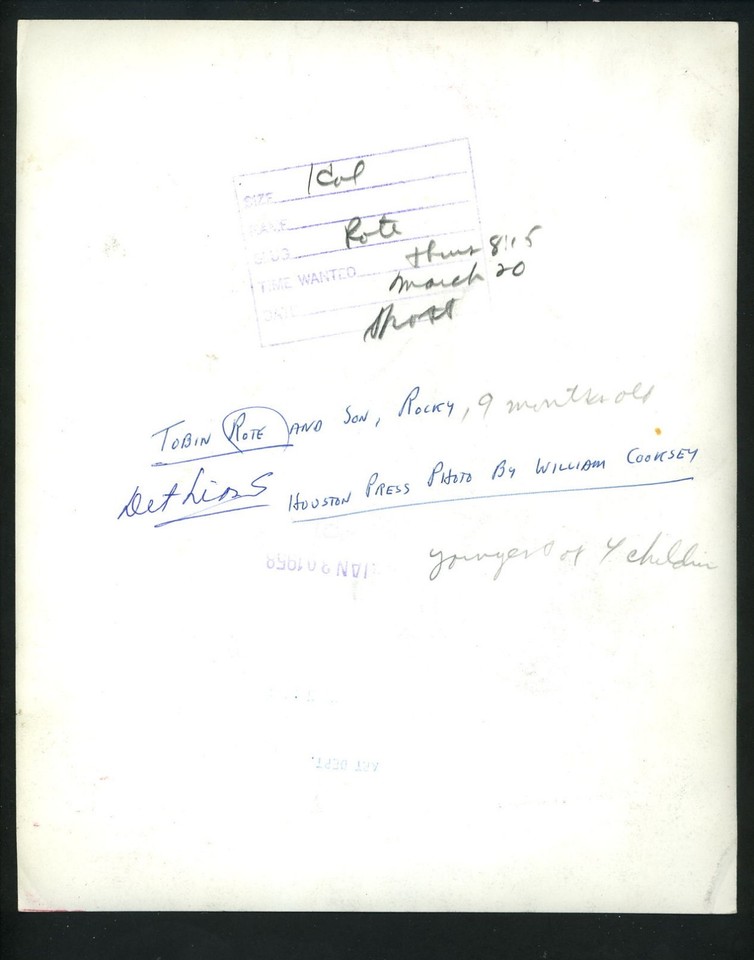 SIZE 1 Col
SLUG Rote
TIME WANTED thur 8:15
DATE March 20
Sport
TOBIN ROTE AND SON, ROCKY, 9 months old
Det Lions HOUSTON PRESS PHOTO BY WILLIAM COOKSEY
youngest of 4 children
JAN 30 1958
ART DEPT.